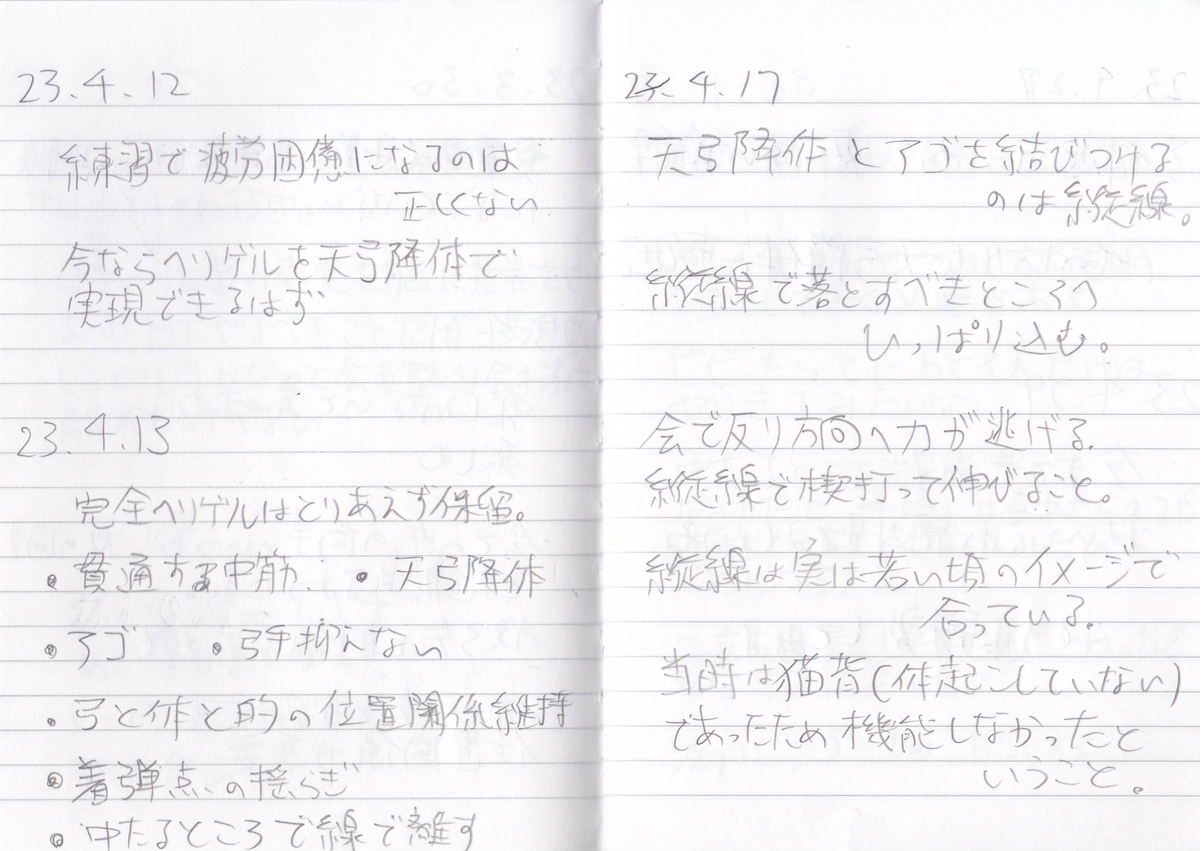 23.4.12
練習で疲労困憊になるのは
正しくない
今ならヘリゲルを天弓降体で
実現できるはず
23.4.13
完全ヘリゲルはとりあえず保留。
・貫通する中筋 ・天弓降体
・アゴ ・弓手抑えない
・弓と体と的の位置関係維持
・着弾点の揺らぎ
・中たるところで線で離す
23.4.17
天弓降体とアゴを結びつける
のは縦線。
縦線で落とすべきところへ
ひっぱり込む。
会で反り方向へ力が逃げる。
縦線で楔打って伸びること。
縦線は実は若い頃のイメージで
合っている。
当時は猫背(体起こしていない)
であったため機能しなかったと
いうこと。